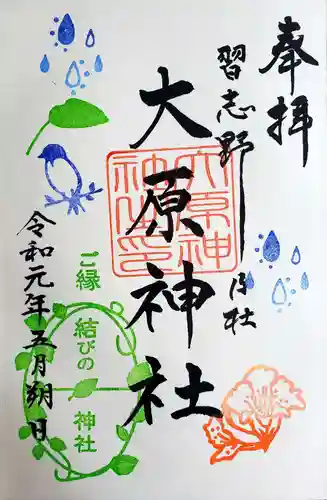 奉拝
習志野
大原神社
大原神
社之印
令和元年五月朔日
ご縁
結びの
神社